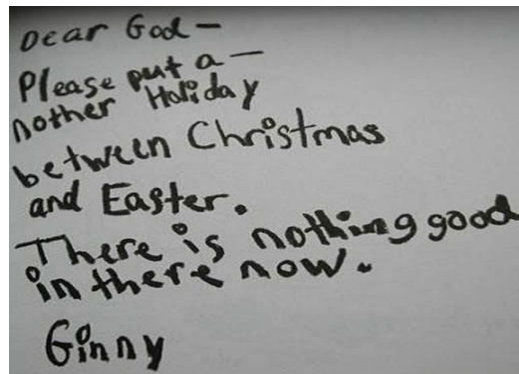 Dear God —
Please put a —
nother Holiday
between Christmas
and Easter.
There is nothing good
in there now.
Ginny